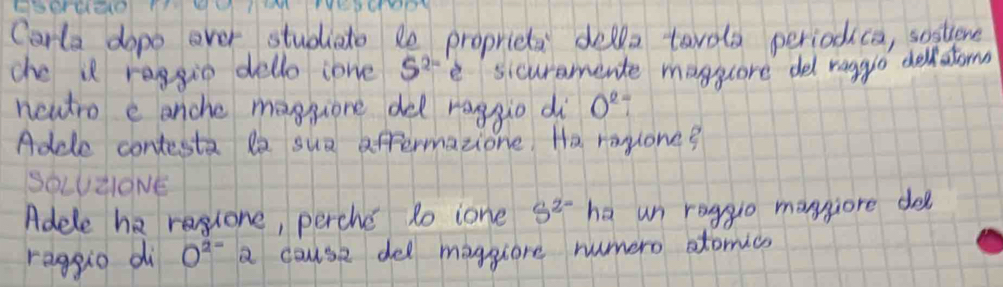 Carla dopo aver studiato le proprietà della tavola periodica, sostiene
che il raggio dello ione S²⁻ è sicuramente maggiore del raggio dell'atomo
neutro e anche maggiore del raggio di O²⁻.
Adele contesta la sua affermazione. Ha ragione?
SOLUZIONE
Adele ha ragione, perché lo ione S²⁻ ha un raggio maggiore del
raggio di O²⁻ a causa del maggiore numero atomico